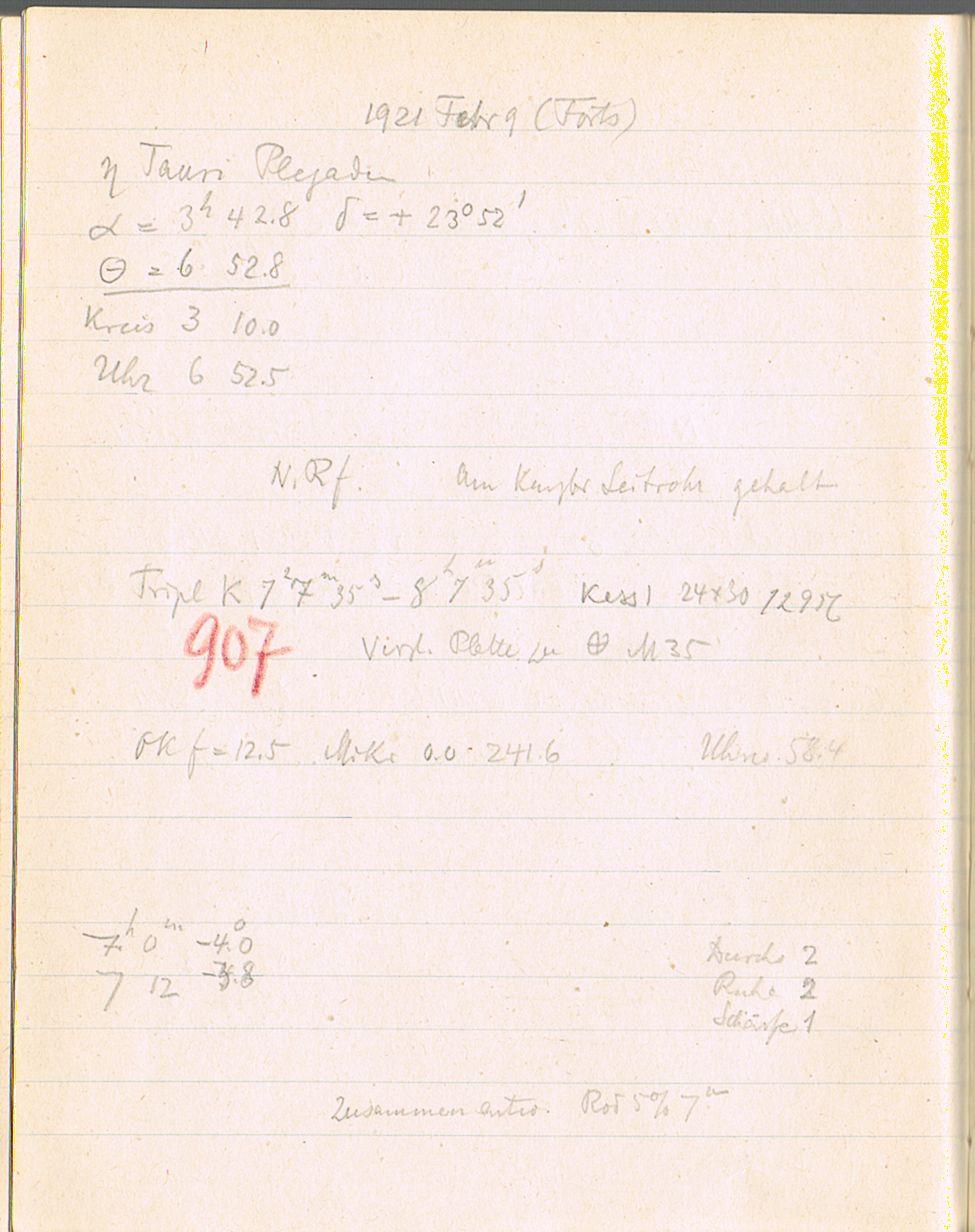 1921 Febr 9 (Forts)
η Tauri Plejaden
α = 3h 42.8 δ = + 23° 52'
Θ = 6 52.8
Kreis 3 10.0
Uhr 6 52.5
N. Rf. am Leitrohr gehalten
Tripl K 7h 7m 35s – 8h 7m 35s 24x30
907 Platte zu ⊕ M 35
OK f = 12.5 Mikr 0.0 241.6 58.4
7h 0m –4.0°
7 12 –3.8
Durchs 2
Ruhe 2
Schärfe 1
Zusammen entw. Rod 5% 7m